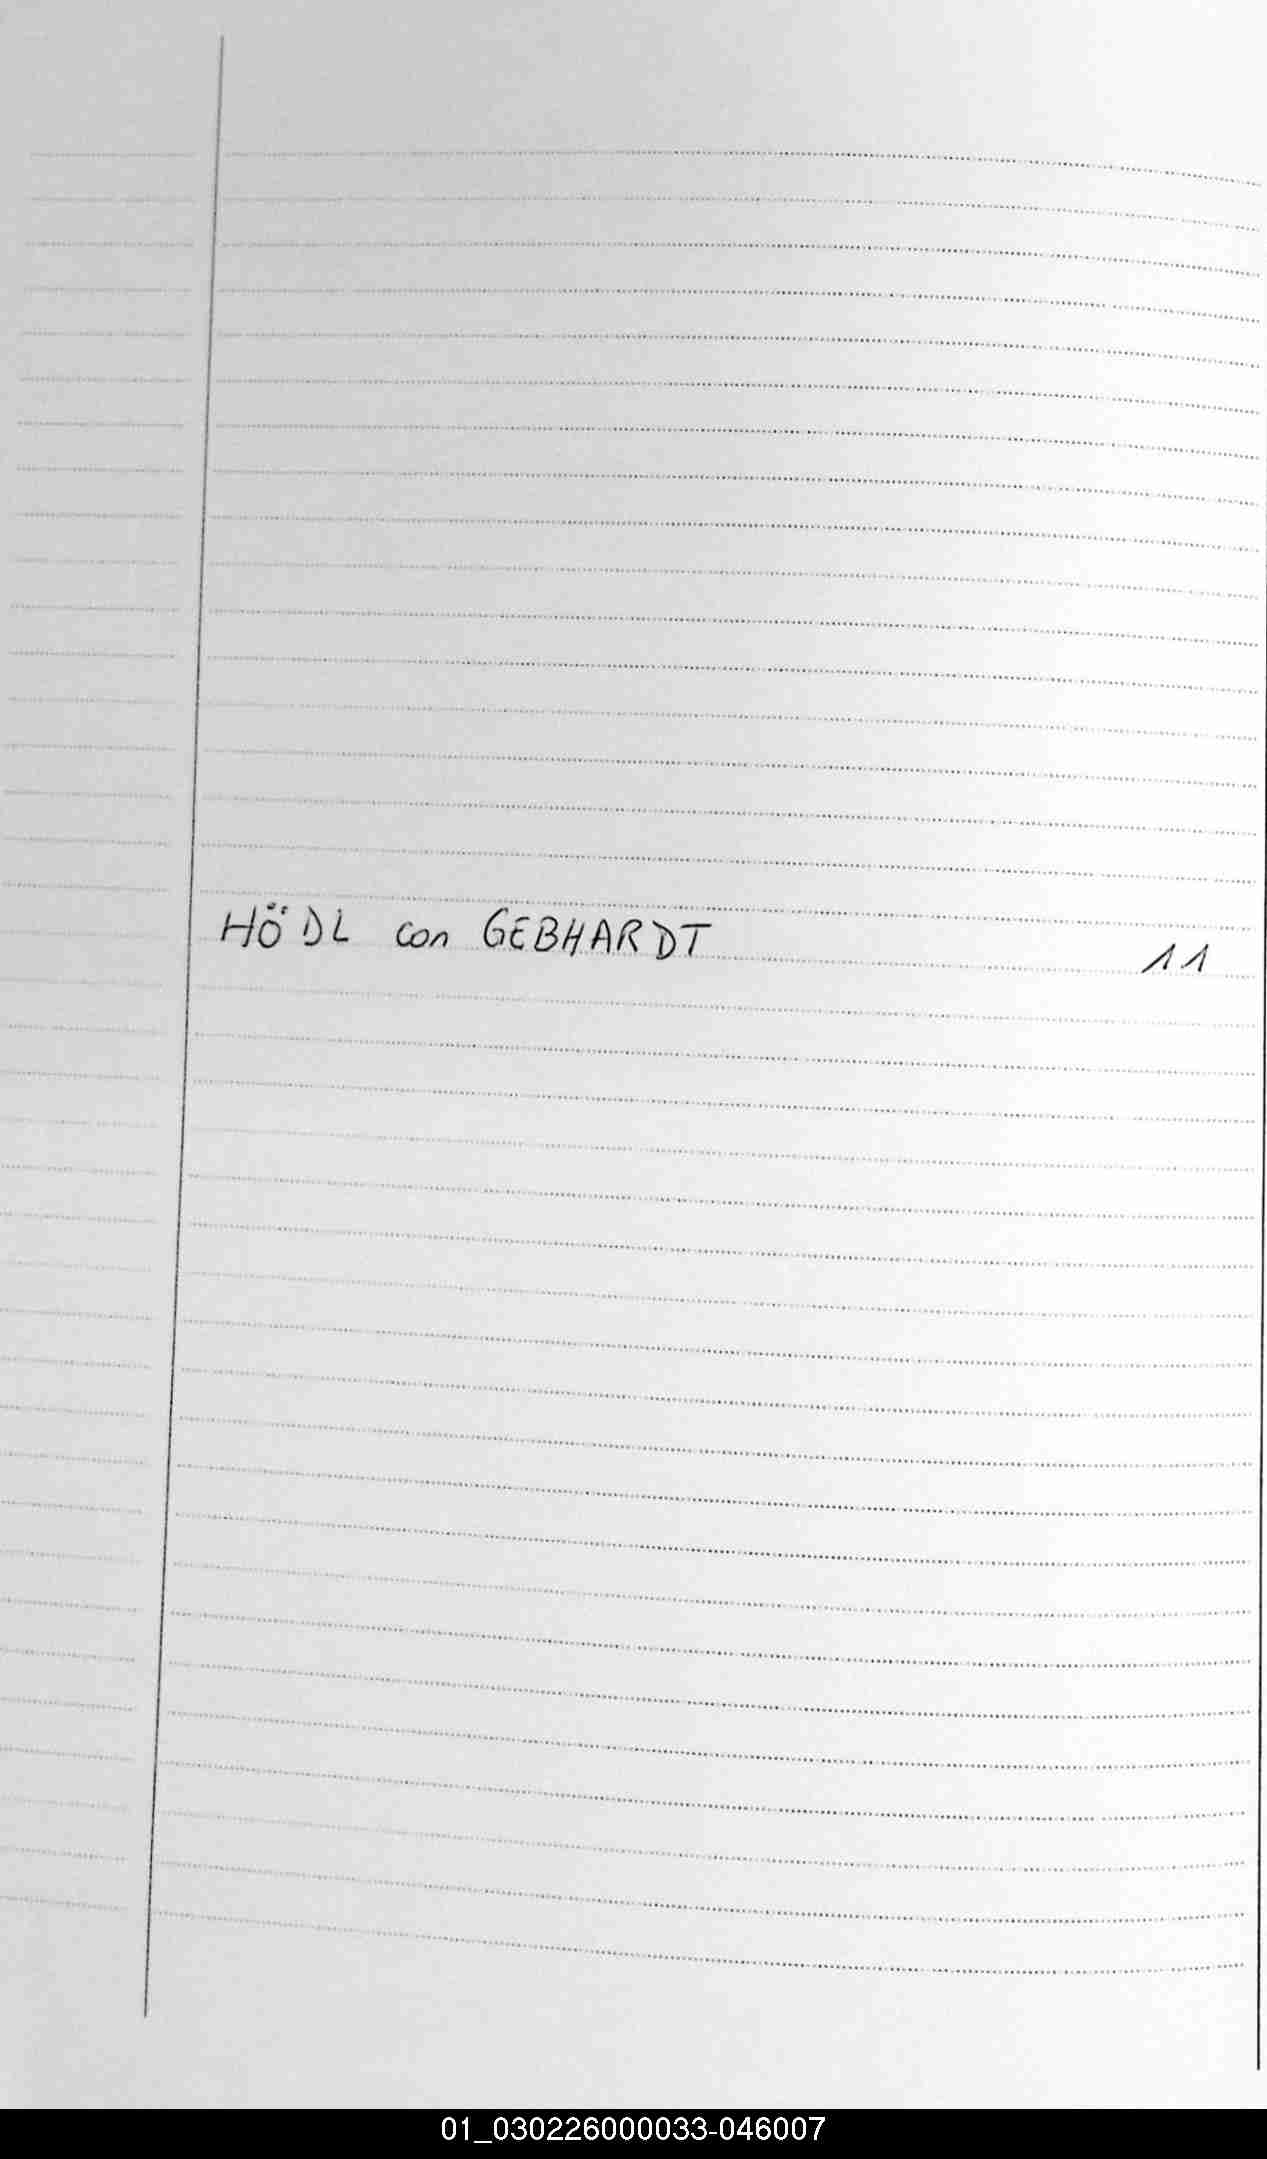 HÖDL con GEBHARDT 11
01_030226000033-046007